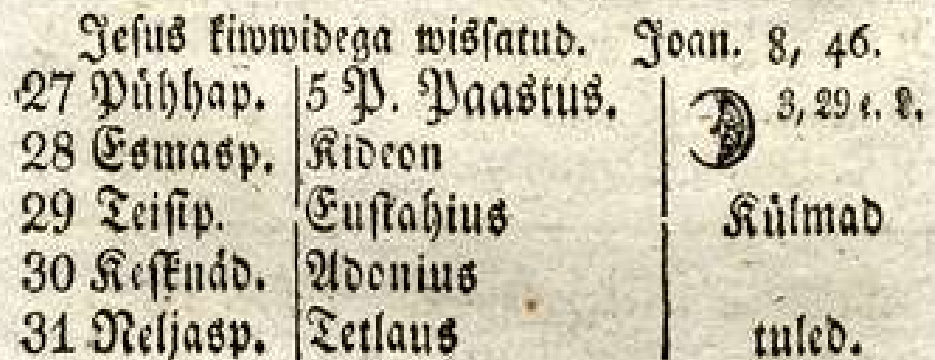 Jesus kiwwidega wissatud. Joan. 8, 46.
27 Pühhap. 5 P. Paastus. 3, 29 e. L.
28 Esmasp. Kideon
29 Teisip. Eustahius Külmad
30 Kesknäd. Adonius
31 Neljasp. Tetlaus tuled.